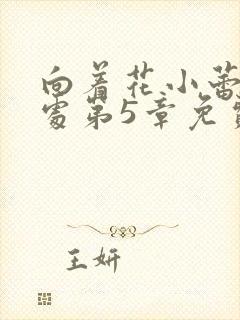 向着花小蕾
处第5章免费
王妍